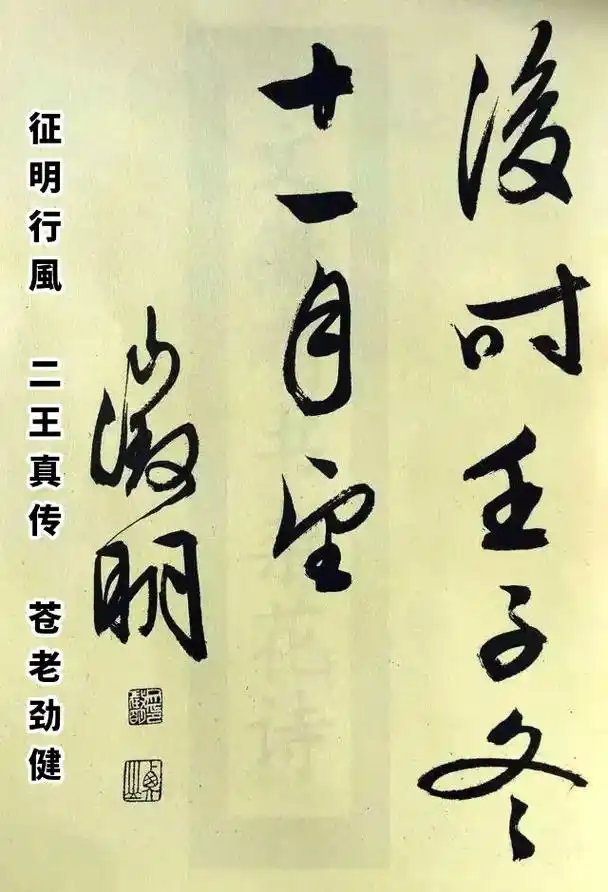 後时壬子冬
十一月望
徵明
征明行風 二王真传 苍老劲健